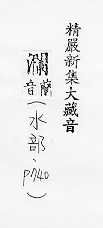 精嚴新集大藏音
瀾蘭音(水部、p740)